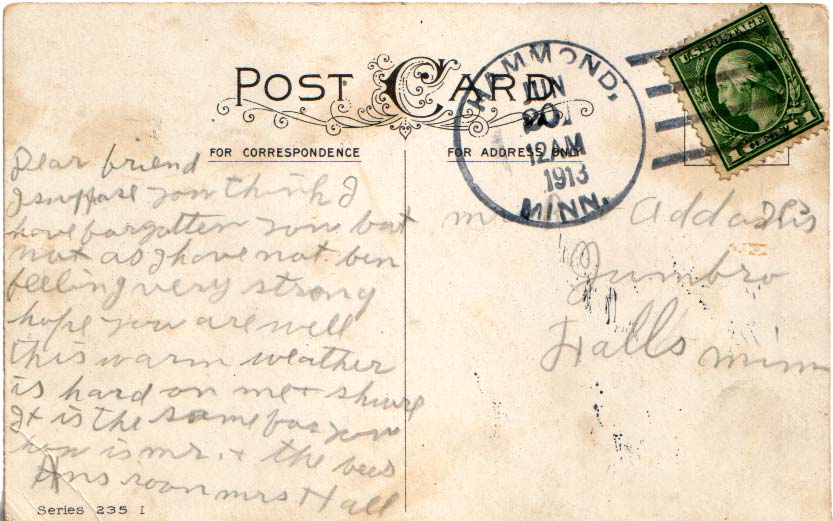 POST CARD
HAMMOND,
JUN
20
12AM
1913
MINN.
U.S. POSTAGE
1 CENT 1
FOR CORRESPONDENCE
FOR ADDRESS ONLY
Dear friend
I suppose you think I
have forgotten you but
not as I have not ben
feeling very strong
hope you are well
this warm weather
is hard on me + shure
It is the same for you
how is mr. + the bees
Ans soon mrs Hall
Series 235 I
mrs Addadis
Zumbro
Falls minn